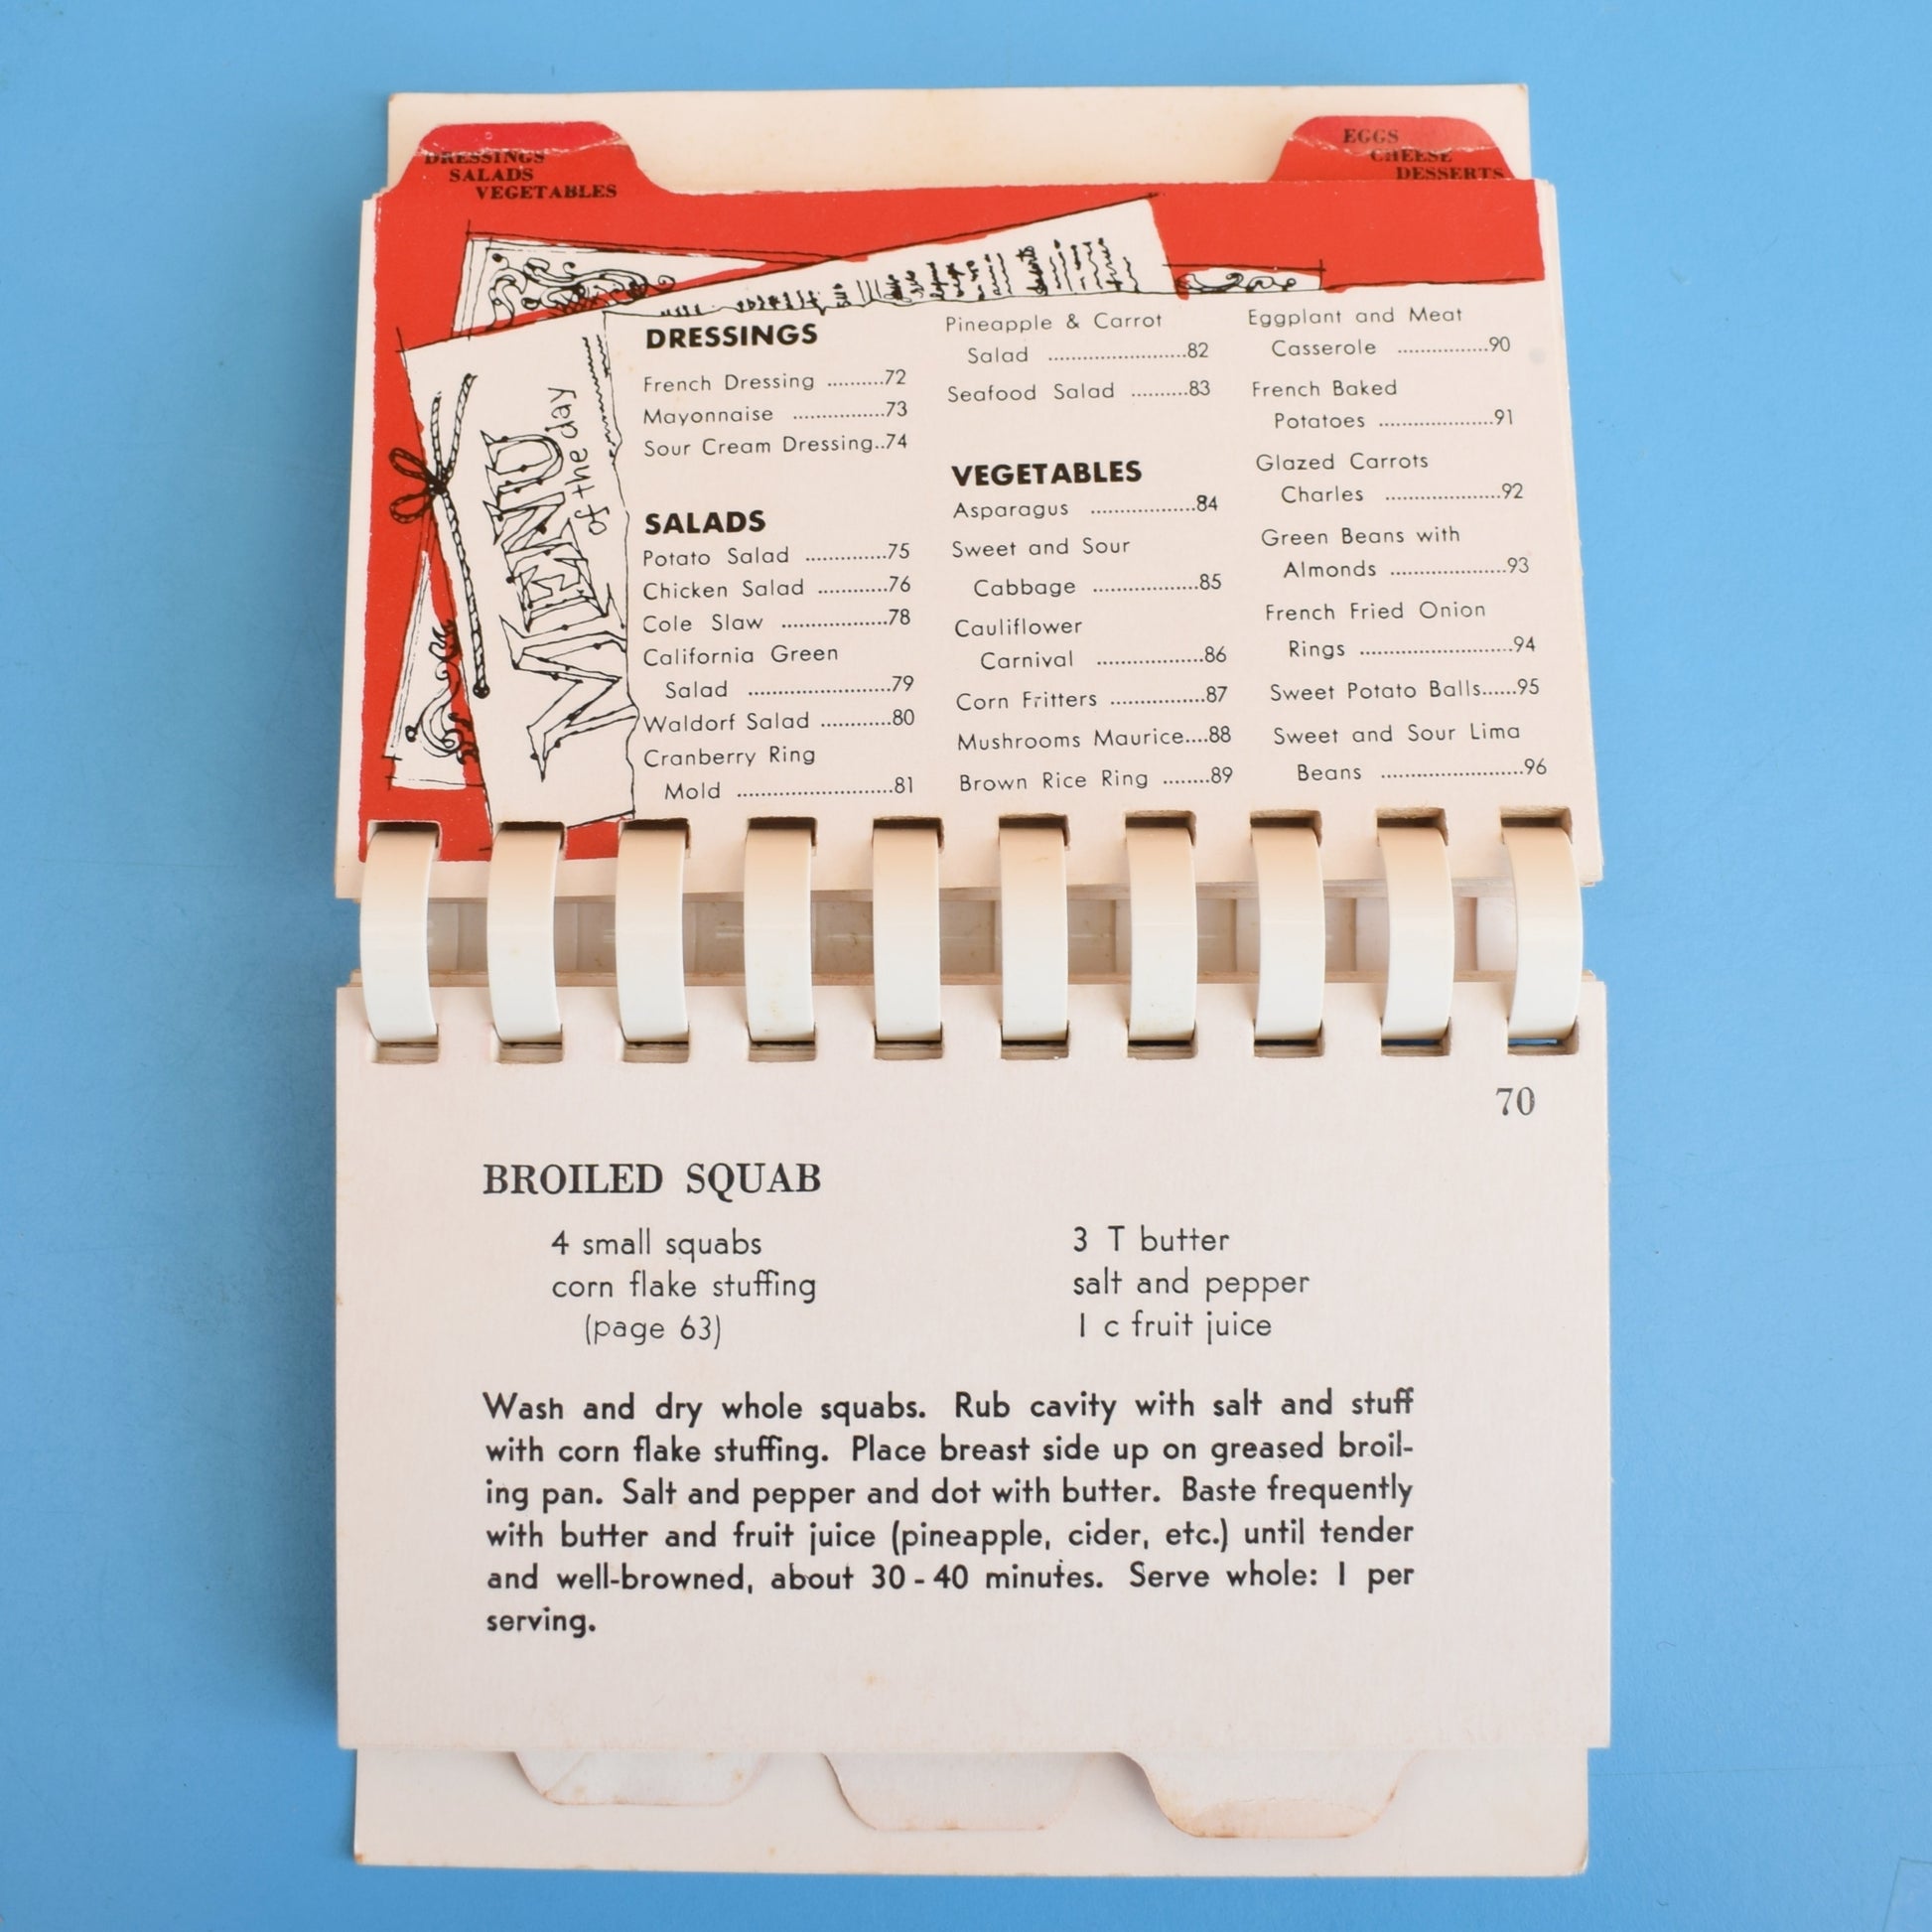 DRESSINGS
SALADS
VEGETABLES
EGGS
CHEESE
DESSERTS
MENU
of the day
DRESSINGS
French Dressing ..........72
Mayonnaise ................73
Sour Cream Dressing..74
SALADS
Potato Salad ..............75
Chicken Salad ............76
Cole Slaw ...................78
California Green
Salad .........................79
Waldorf Salad ............80
Cranberry Ring
Mold ...........................81
Pineapple & Carrot
Salad ........................82
Seafood Salad ..........83
VEGETABLES
Asparagus ...................84
Sweet and Sour
Cabbage ..................85
Cauliflower
Carnival ...................86
Corn Fritters ................87
Mushrooms Maurice....88
Brown Rice Ring ........89
Eggplant and Meat
Casserole ................90
French Baked
Potatoes ....................91
Glazed Carrots
Charles ....................92
Green Beans with
Almonds ....................93
French Fried Onion
Rings ...........................94
Sweet Potato Balls......95
Sweet and Sour Lima
Beans .........................96
70
BROILED SQUAB
4 small squabs
corn flake stuffing
(page 63)
3 T butter
salt and pepper
1 c fruit juice
Wash and dry whole squabs. Rub cavity with salt and stuff
with corn flake stuffing. Place breast side up on greased broil-
ing pan. Salt and pepper and dot with butter. Baste frequently
with butter and fruit juice (pineapple, cider, etc.) until tender
and well-browned, about 30 - 40 minutes. Serve whole: 1 per
serving.